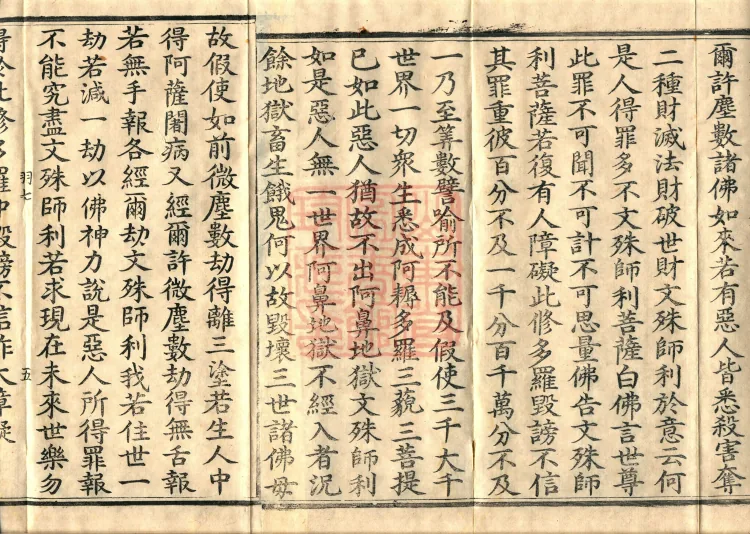 爾許塵數諸佛如來若有惡人皆悉殺害奪
二種財滅法財破世財文殊師利於意云何
是人得罪多不文殊師利菩薩白佛言世尊
此罪不可聞不可計不可思量佛告文殊師
利菩薩若復有人障礙此修多羅毀謗不信
其罪重彼百分不及一千分百千萬分不及
一乃至筭數譬喻所不能及假使三千大千
世界一切衆生悉成阿耨多羅三藐三菩提
已如此惡人猶故不出阿鼻地獄文殊師利
如是惡人無一世界阿鼻地獄不經入者況
餘地獄畜生餓鬼何以故毀壞三世諸佛毋
故假使如前微塵數劫得離三塗若生人中
得阿薩闍病又經爾許微塵數劫得無舌報
若無手報各經爾劫文殊師利我若住世一
劫若減一劫以佛神力說是惡人所得罪報
不能究盡文殊師利若求現在未來世樂勿
羽七
五